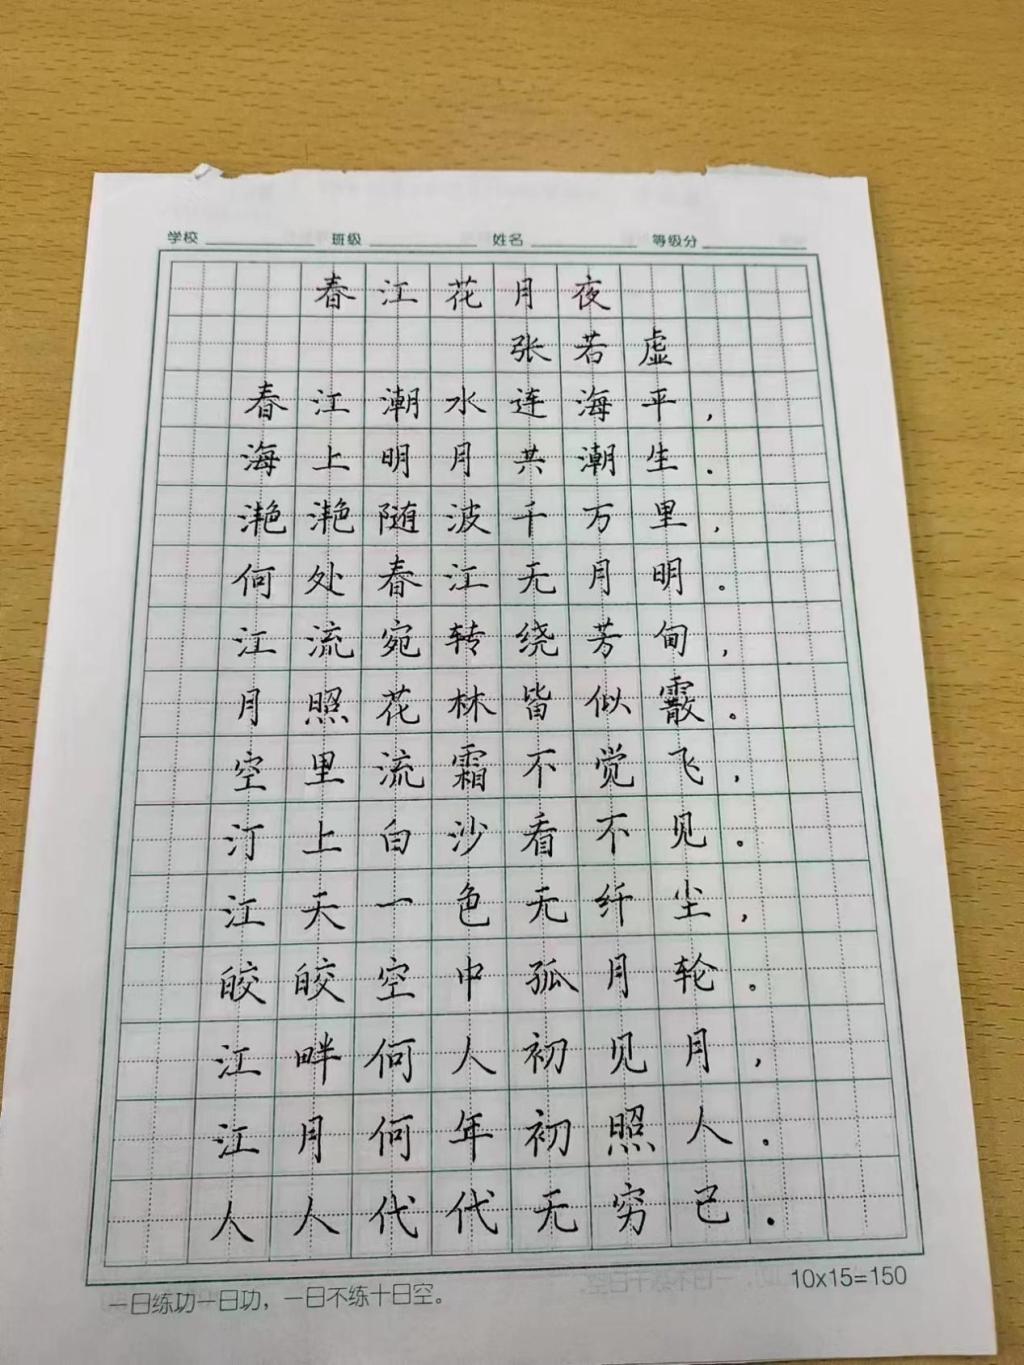 学校 班级 姓名 等级分
春江花月夜
张若虚
春江潮水连海平,
海上明月共潮生.
滟滟随波千万里,
何处春江无月明。
江流宛转绕芳甸,
月照花林皆似霰。
空里流霜不觉飞,
汀上白沙看不见.
江天一色无纤尘,
皎皎空中孤月轮。
江畔何人初见月,
江月何年初照人.
人人代代无穷已.
10x15=150
一日练功一日功，一日不练十日空。